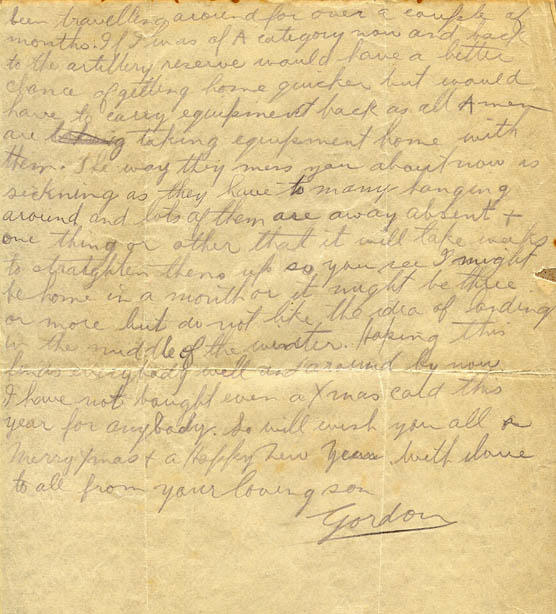 been travelling around for over a couple of
months. If I was of A category now and back
to the artillery reserve would have a better
chance of getting home quicker but would
have to carry equipment back as all A men
are taking equipment home with
them. The way they mess you about now is
sickning as they have to many hanging
around and lots of them are away absent +
one thing or other that it will take weeks
to straighten them up so you see I might
be home in a month or it might be three
or more but do not like the idea of landing
in the middle of the winter. Hoping this
finds everybody well and around by now
I have not bought even a Xmas card this
year for anybody. So will wish you all a
Merry Xmas + a Happy New Year with love
to all from your loving son
Gordon